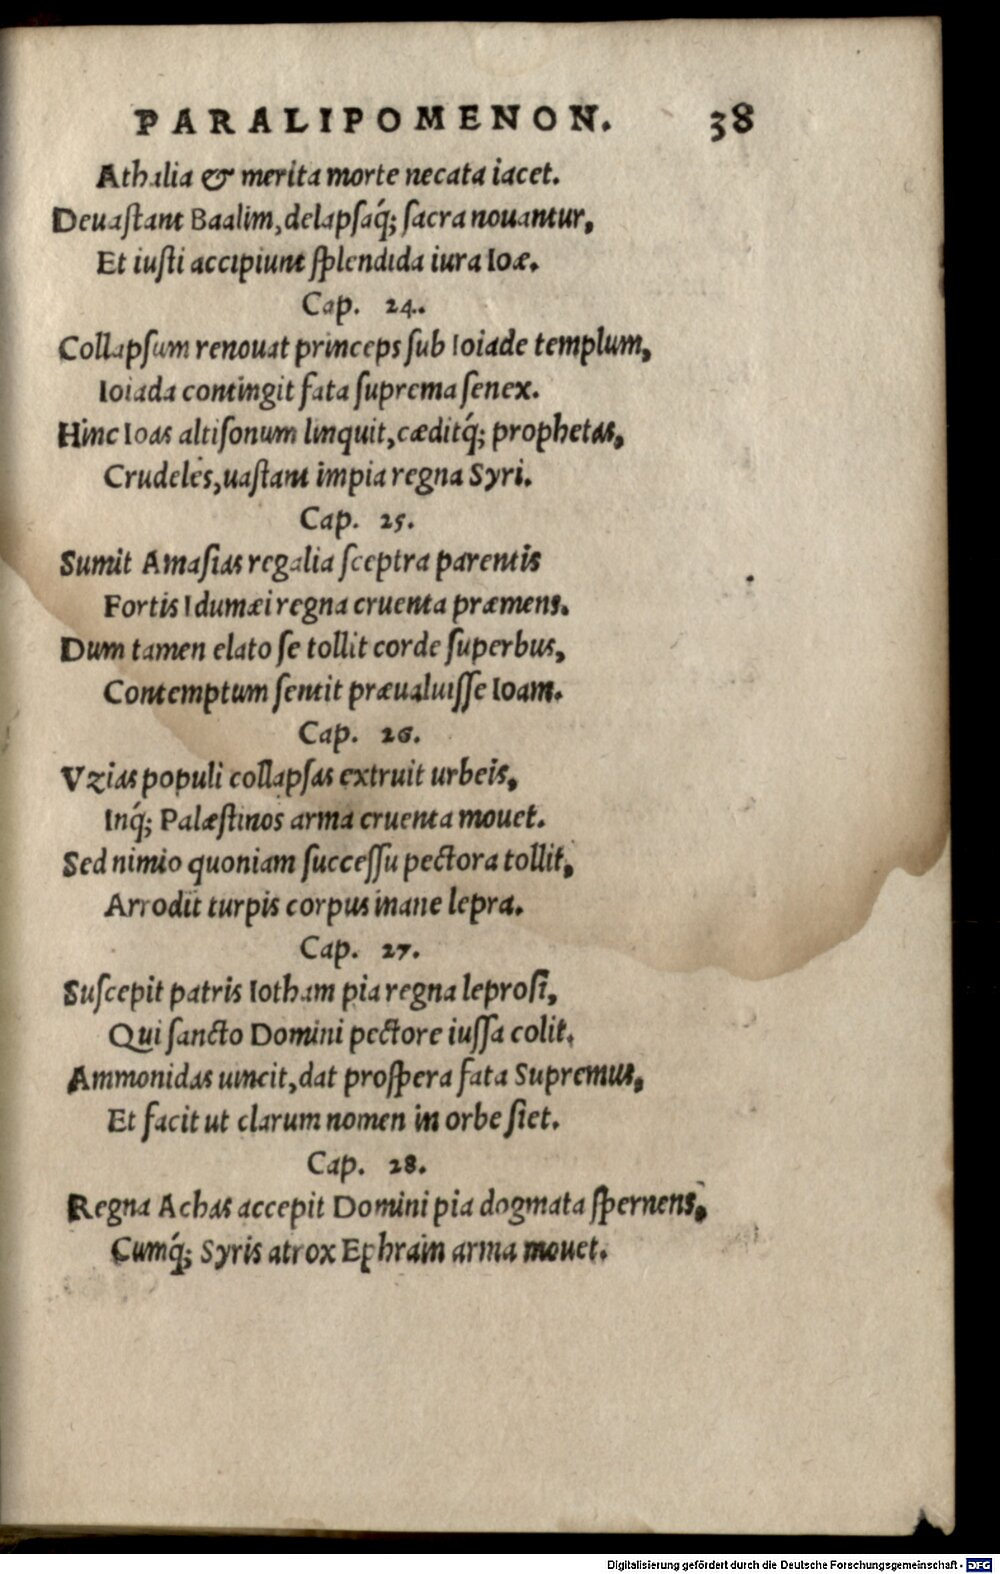 PARALIPOMENON. 38
Athalia & merita morte necata iacet.
Deuaſtant Baalim, delapſaq́; ſacra nouantur,
Et iuſti accipiunt ſplendida iura Ioæ.
Cap. 24.
Collapſum renouat princeps ſub Ioiade templum,
Ioiada contingit fata ſuprema ſenex.
Hinc Ioas altiſonum linquit, cæditq́; prophetas,
Crudeles, uaſtant impia regna Syri.
Cap. 25.
Sumit Amaſias regalia ſceptra parentis
Fortis Idumæi regna cruenta præmens.
Dum tamen elato ſe tollit corde ſuperbus,
Contemptum ſentit præualuiſſe Ioam.
Cap. 26.
Vzias populi collapſas extruit urbeis,
Inq́; Palæſtinos arma cruenta mouet.
Sed nimio quoniam ſucceſſu pectora tollit,
Arrodit turpis corpus inane lepra.
Cap. 27.
Suſcepit patris Iotham pia regna leproſi,
Qui ſancto Domini pectore iuſſa colit.
Ammonidas uincit, dat proſpera fata Supremus,
Et facit ut clarum nomen in orbe ſiet.
Cap. 28.
Regna Achas accepit Domini pia dogmata ſpernens,
Cumq́; Syris atrox Ephraim arma mouet.
Digitalisierung gefördert durch die Deutsche Forschungsgemeinschaft - DFG